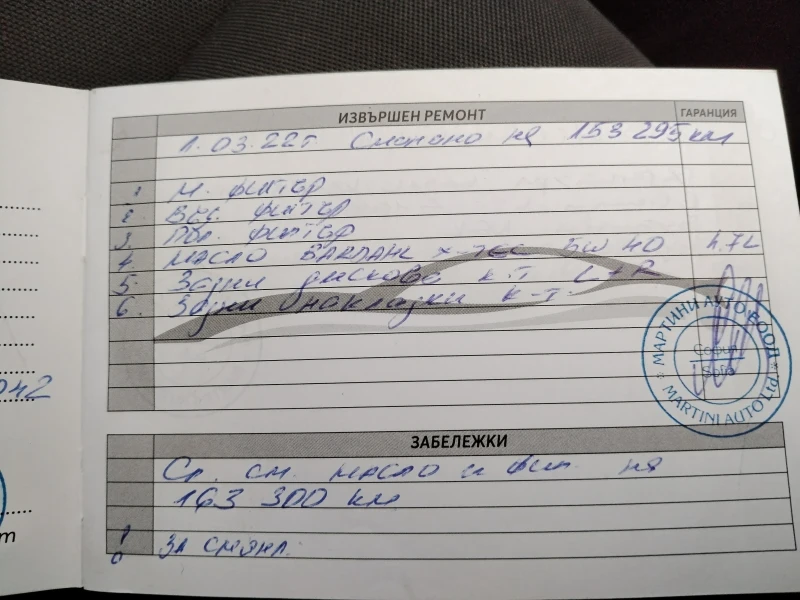 ИЗВЪРШЕН РЕМОНТ ГАРАНЦИЯ
1.03.22г Сменено на 153 295км
1 М. филтър
2. Въз. филтър
3. Пол. филтър
4. МАСЛО 5W 40 4.7L
5. Задни дискове к-т L+R
6. Задни накладки к-т
МАРТИНИ АУТО ЕООД
София
Sofia
MARTINI AUTO Ltd
042
т
ЗАБЕЛЕЖКИ
Сл. см. масло и фил. на
163 300 км
! За смяна: